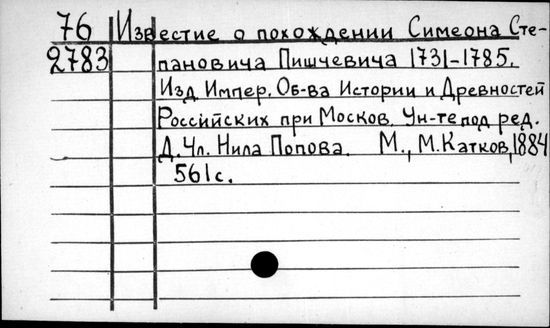 76 Известие о похождении Симеона Сте-
2783 пановича Пишчевича 1731-1785.
Изд. Импер. Об-ва Истории и Древностей
Российских при Москов. Ун-те под ред.
Д. Чл. Нила Попова. М., М. Катков, 1884
561с.